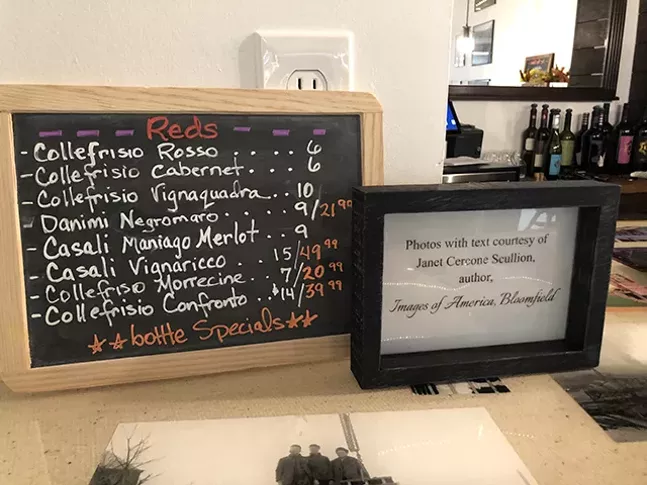 Reds
- Collefrisio Rosso .... 6
- Collefrisio Cabernet ... 6
- Collefrisio Vignaquadra .. 10
- Danimi Negromaro ... 9/21.99
- Casali Maniago Merlot . 9
- Casali Vignaricco .... 15/49.99
- Collefrisio Morrecine . 7/20.99
- Collefrisio Confronto . $14/39.99
★★bottle Specials★★
Photos with text courtesy of
Janet Cercone Scullion,
author,
Images of America, Bloomfield